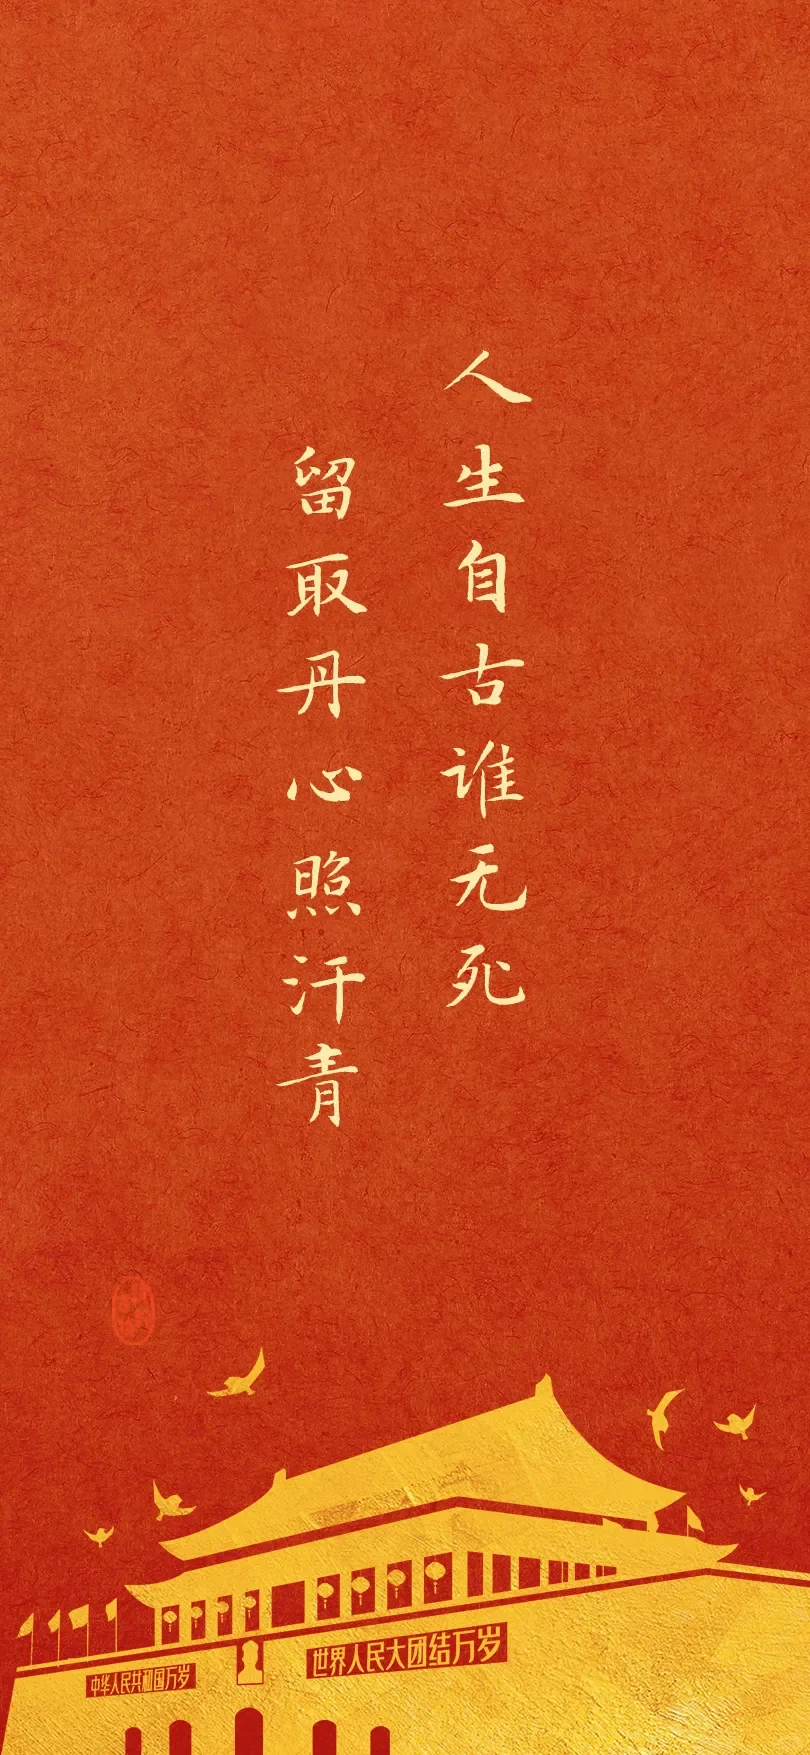 人生自古谁无死
留取丹心照汗青
中华人民共和国万岁
世界人民大团结万岁